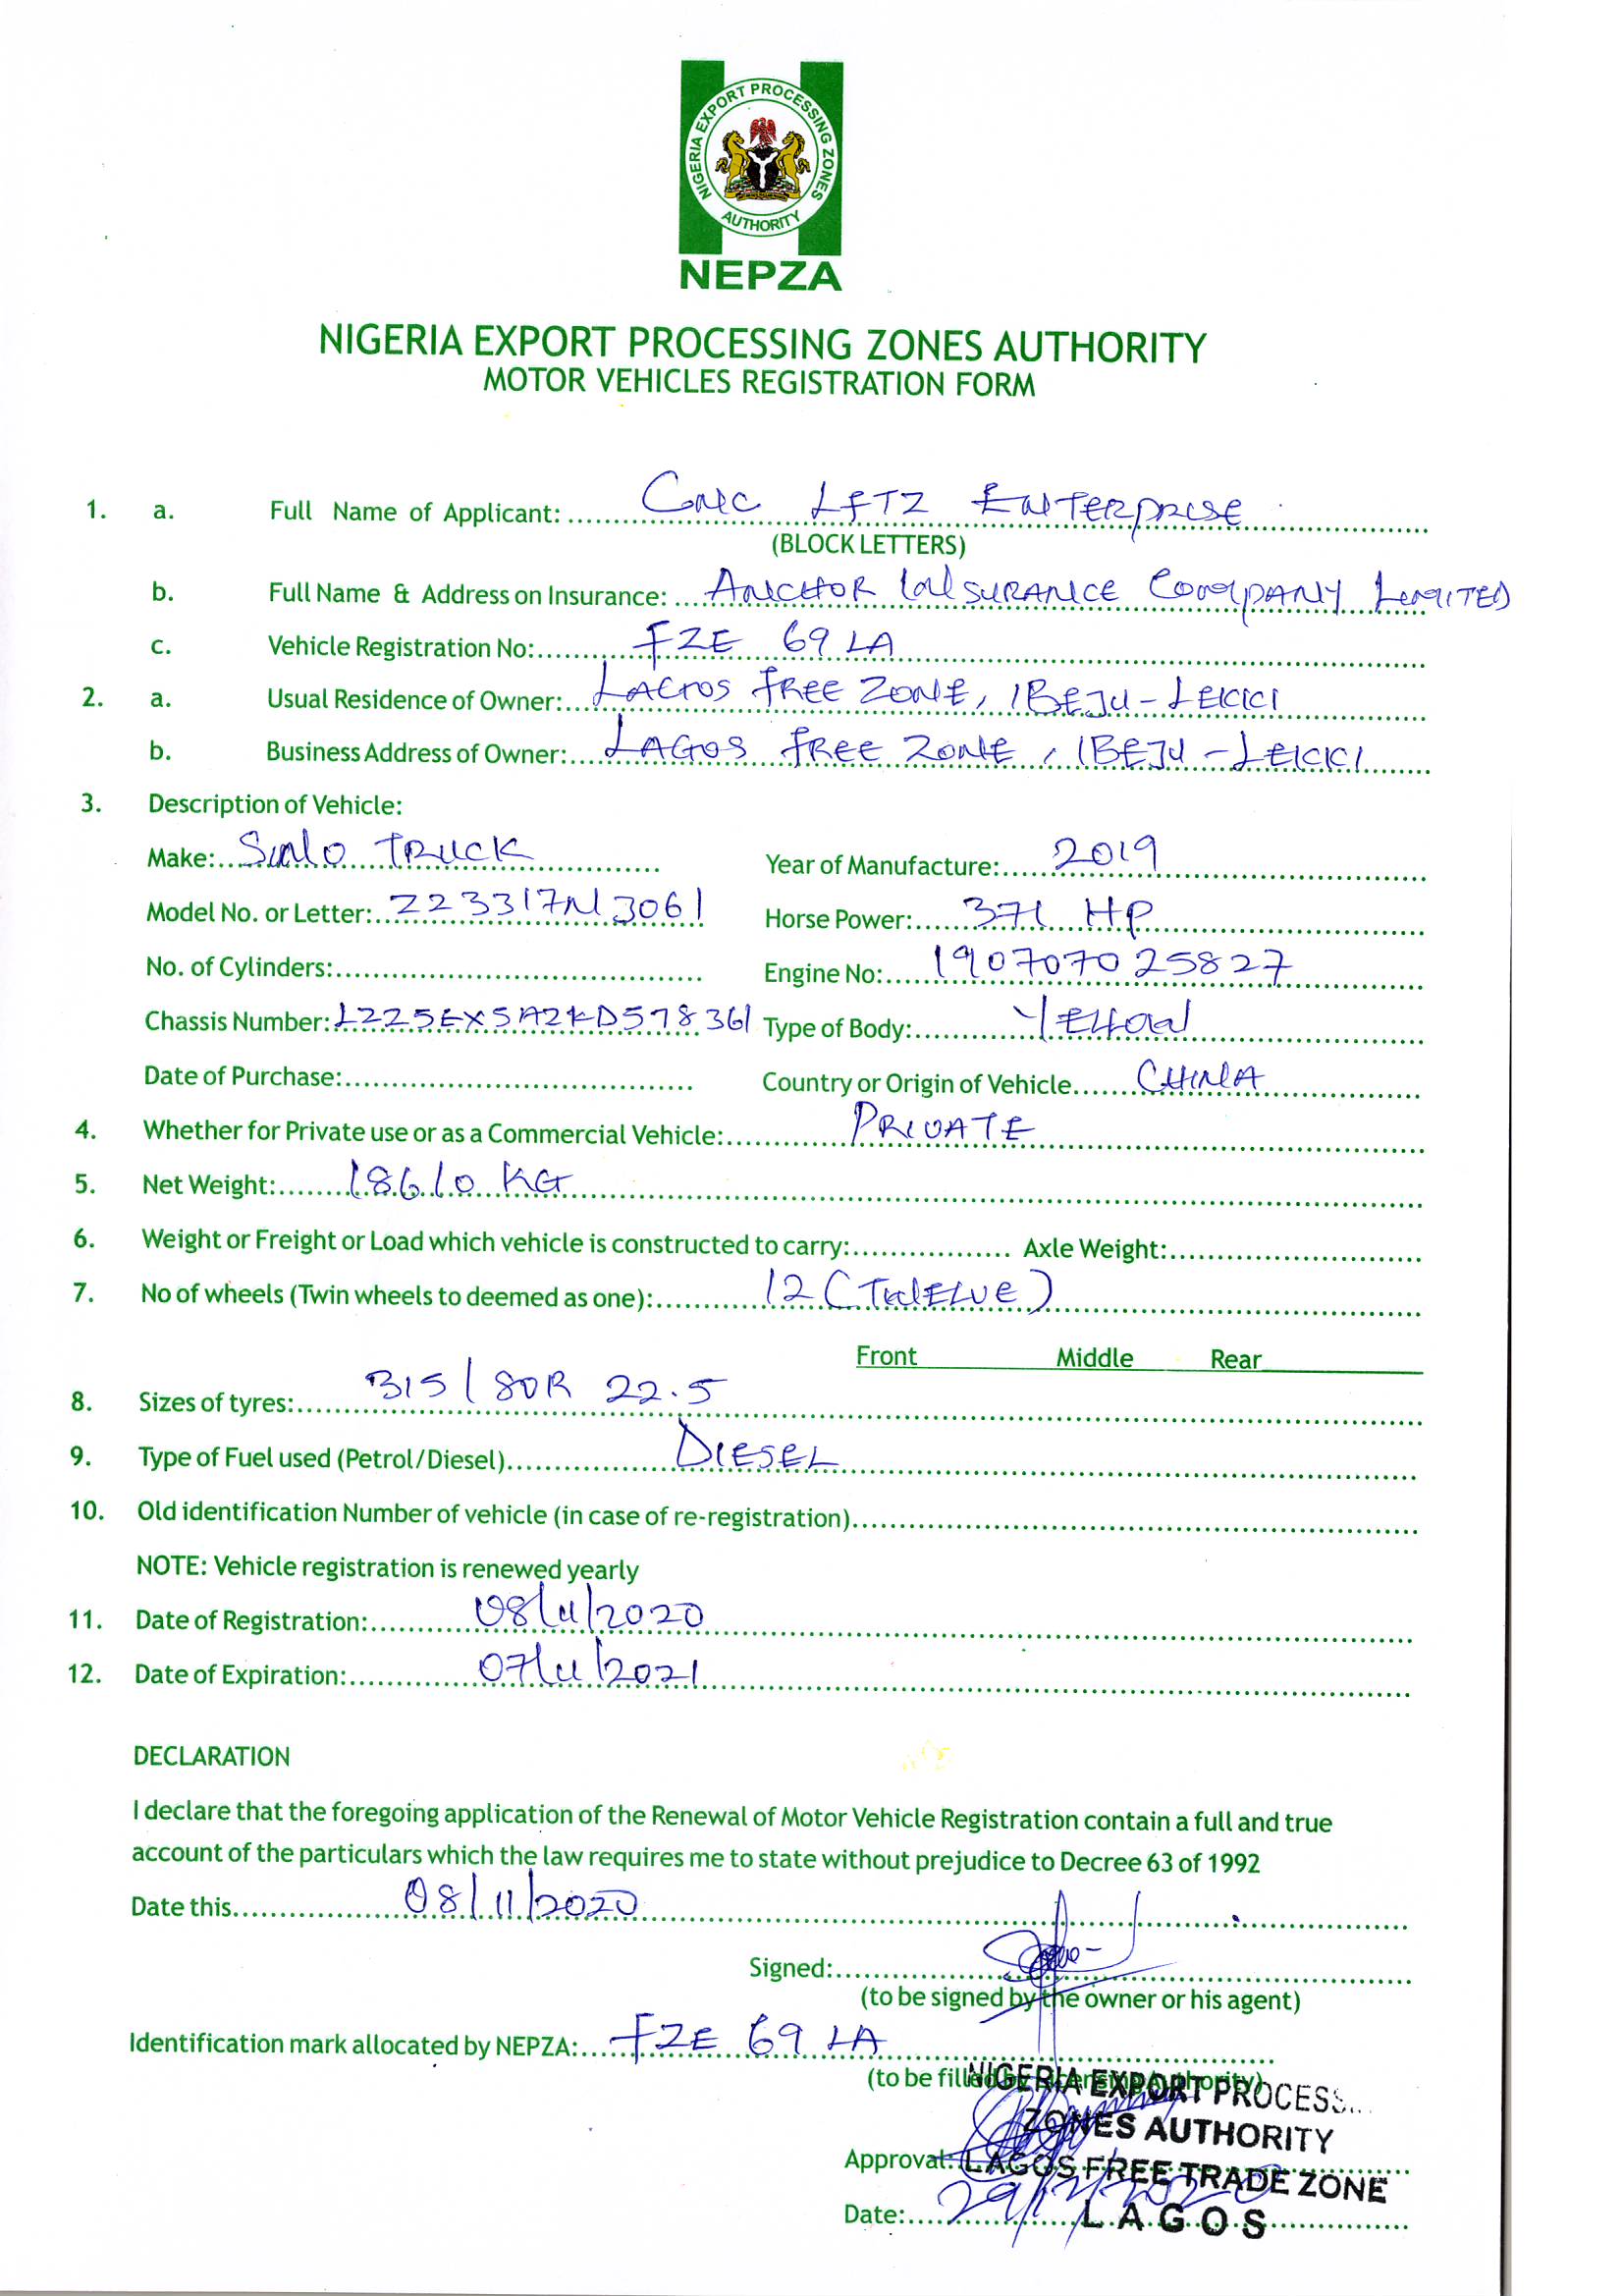 NIGERIA EXPORT PROCESSING ZONES
AUTHORITY
NEPZA
NIGERIA EXPORT PROCESSING ZONES AUTHORITY
MOTOR VEHICLES REGISTRATION FORM
1. a. Full Name of Applicant: CMC LFTZ ENTERPRISE
(BLOCK LETTERS)
b. Full Name & Address on Insurance: ANCHOR INSURANCE COMPANY LIMITED
c. Vehicle Registration No: FZE 69 LA
2. a. Usual Residence of Owner: LAGOS FREE ZONE, IBEJU-LEKKI
b. Business Address of Owner: LAGOS FREE ZONE, IBEJU-LEKKI
3. Description of Vehicle:
Make: SINO TRUCK Year of Manufacture: 2019
Model No. or Letter: ZZ3317N3061 Horse Power: 371 HP
No. of Cylinders: Engine No: 190707025827
Chassis Number: LZZ5EXSA2KD578361 Type of Body: YELLOW
Date of Purchase: Country or Origin of Vehicle CHINA
4. Whether for Private use or as a Commercial Vehicle: PRIVATE
5. Net Weight: 18610 KG
6. Weight or Freight or Load which vehicle is constructed to carry: Axle Weight:
7. No of wheels (Twin wheels to deemed as one): 12 (TWELVE)
Front Middle Rear
8. Sizes of tyres: 315/80R 22.5
9. Type of Fuel used (Petrol/Diesel) DIESEL
10. Old identification Number of vehicle (in case of re-registration)
NOTE: Vehicle registration is renewed yearly
11. Date of Registration: 08/11/2020
12. Date of Expiration: 07/11/2021
DECLARATION
I declare that the foregoing application of the Renewal of Motor Vehicle Registration contain a full and true
account of the particulars which the law requires me to state without prejudice to Decree 63 of 1992
Date this 08/11/2020
Signed:
(to be signed by the owner or his agent)
Identification mark allocated by NEPZA: FZE 69 LA
(to be filled by Licensing Authority)
NIGERIA EXPORT PROCESS
ZONES AUTHORITY
Approval: LAGOS FREE TRADE ZONE
Date: 29/12/2020
LAGOS